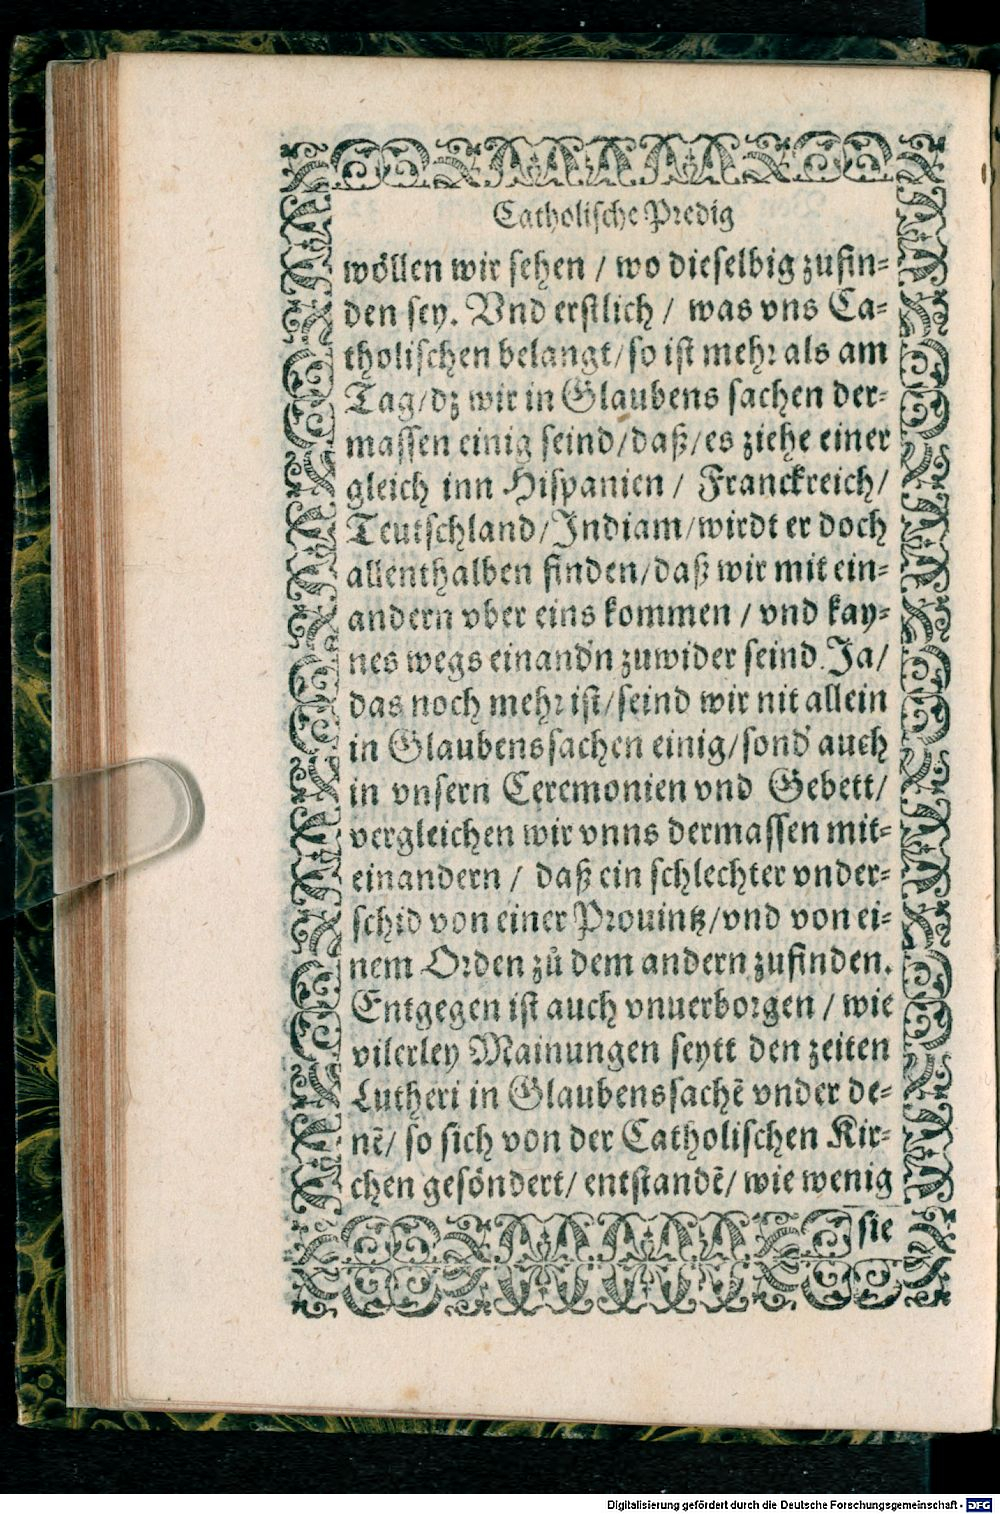 Catholische Predig
wöllen wir sehen / wo dieselbig zufin-
den sey. Vnd erstlich / was vns Ca-
tholischen belangt/so ist mehr als am
Tag/dz wir in Glaubens sachen der-
massen einig seind/daß/es ziehe einer
gleich inn Hispanien / Franckreich/
Teutschland/Indiam/wirdt er doch
allenthalben finden/daß wir mit ein-
andern vber eins kommen / vnd kay-
nes wegs einand'n zuwider seind. Ja/
das noch mehr ist/seind wir nit allein
in Glaubenssachen einig/sond' auch
in vnsern Ceremonien vnd Gebett/
vergleichen wir vnns dermassen mit-
einandern / daß ein schlechter vnder-
schid von einer Prouintz/vnd von ei-
nem Orden zů dem andern zufinden.
Entgegen ist auch vnuerborgen / wie
vilerley Mainungen seytt den zeiten
Lutheri in Glaubenssachẽ vnder de-
nẽ/ so sich von der Catholischen Kir-
chen gesöndert/ entstandẽ/ wie wenig
sie
Digitalisierung gefördert durch die Deutsche Forschungsgemeinschaft - DFG